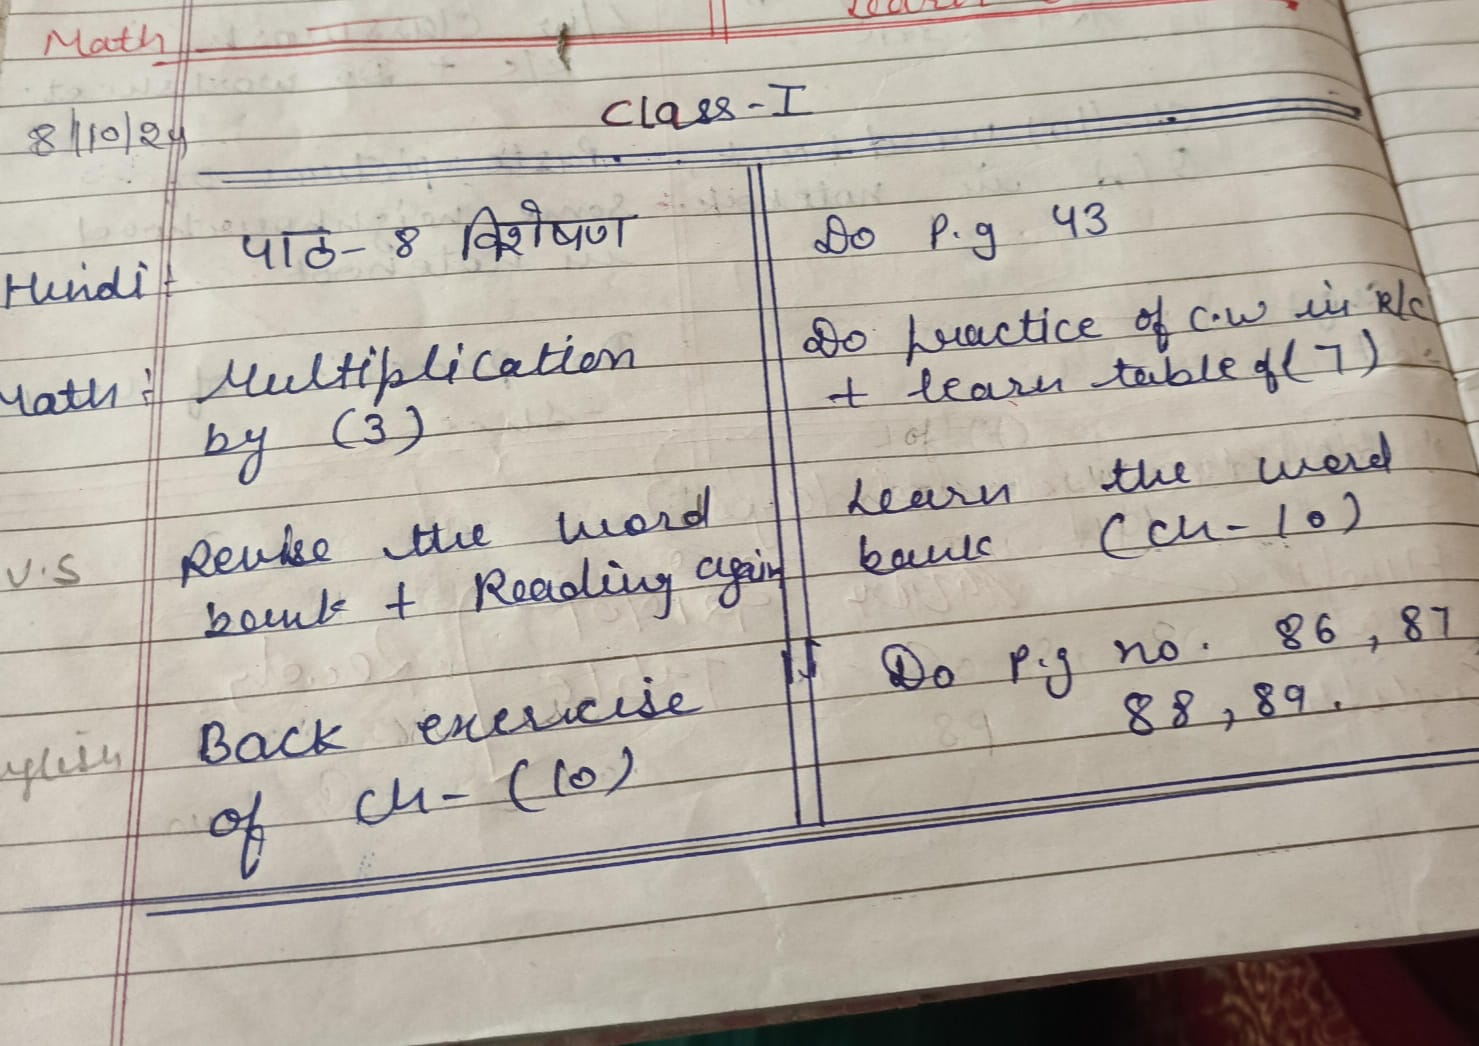 Math
8/10/24
Class-I
Hindi :
पाठ- 8 विशेषण
Do P.g 43
Math :
Multiplication
by (3)
Do practice of c.w in R/C
+ learn table of (7)
V.S
Revise the word
bank + Reading again
Learn the word
bank (Ch-10)
Back exercise
of Ch- (10)
Do P.g no. 86, 87
88, 89.